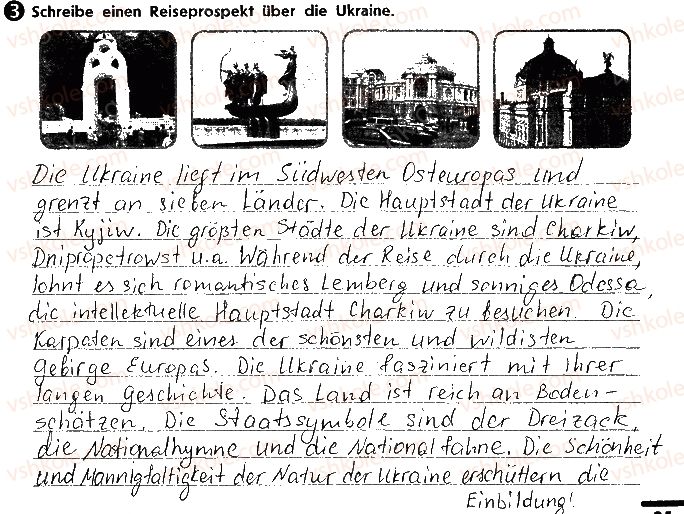 3 Schreibe einen Reiseprospekt über die Ukraine.
Die Ukraine liegt im Südwesten Osteuropas und
grenzt an sieben Länder. Die Hauptstadt der Ukraine
ist Kyjiw. Die größten Städte der Ukraine sind Charkiw,
Dnipropetrowst u.a. Während der Reise durch die Ukraine,
lohnt es sich romantisches Lemberg und sonniges Odessa,
die intellektuelle Hauptstadt Charkiw zu besuchen. Die
Karpaten sind eines der schönsten und wildisten
Gebirge Europas. Die Ukraine fasziniert mit ihrer
langen Geschichte. Das Land ist reich an Boden-
schätzen. Die Staatssymbole sind der Dreizack,
die Nationalhymne und die Nationalfahne. Die Schönheit
und Mannigfaltigkeit der Natur der Ukraine erschüttern die
Einbildung!